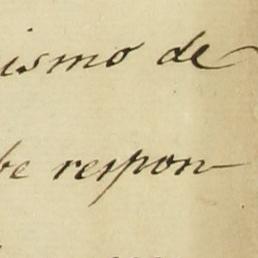 ismo de
be respon-